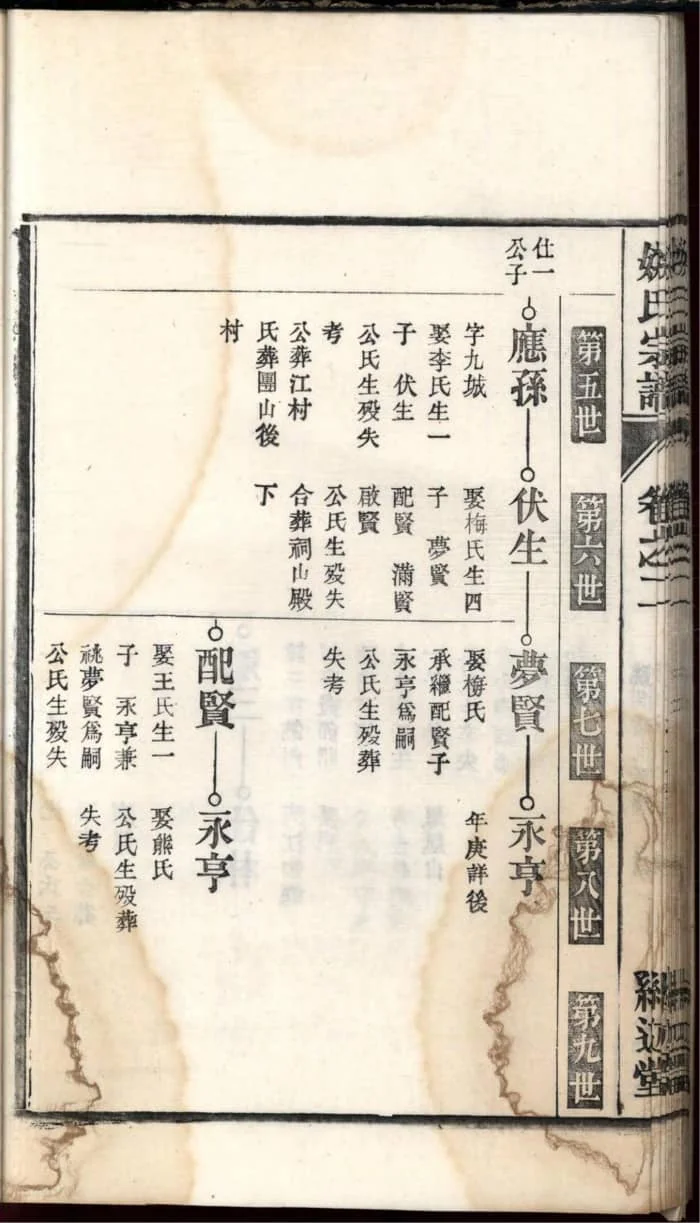 姚氏宗譜
卷之二
第五世
第六世
第七世
第八世
第九世
仕一
公子
應孫
字九城
娶李氏生一
子 伏生
公氏生殁失
考
公葬江村
氏葬團山後
村
伏生
娶梅氏生四
子 夢賢
配賢 滿賢
啟賢
公氏生殁失
合葬祠山殿
下
夢賢
娶梅氏
承繼配賢子
永亨爲嗣
公氏生殁葬
失考
永亨
年庚詳後
配賢
娶王氏生一
子 永亨兼
祧夢賢爲嗣
公氏生殁失
永亨
娶熊氏
公氏生殁葬
失考